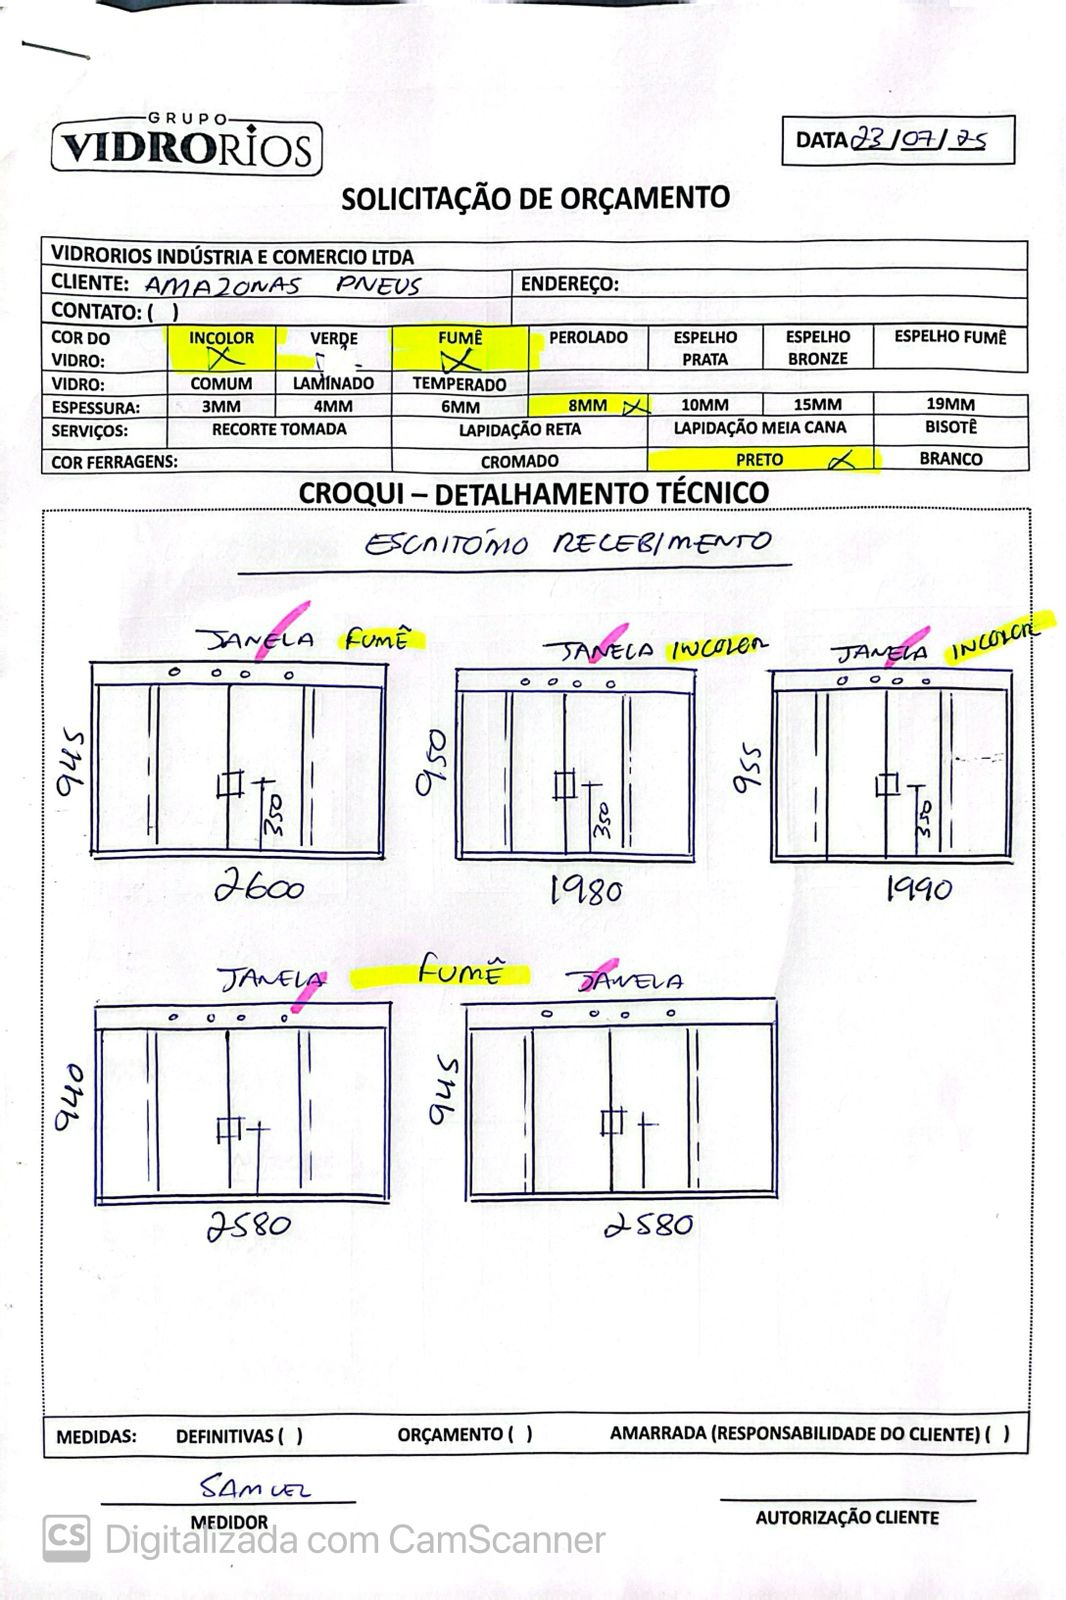 GRUPO
VIDRORIOS
DATA 23/07/25
SOLICITAÇÃO DE ORÇAMENTO
VIDRORIOS INDÚSTRIA E COMERCIO LTDA
CLIENTE: AMAZONAS PNEUS ENDEREÇO:
CONTATO: ( )
COR DO VIDRO: INCOLOR X VERDE FUMÊ X PEROLADO ESPELHO PRATA ESPELHO BRONZE ESPELHO FUMÊ
VIDRO: COMUM LAMINADO TEMPERADO
ESPESSURA: 3MM 4MM 6MM 8MM X 10MM 15MM 19MM
SERVIÇOS: RECORTE TOMADA LAPIDAÇÃO RETA LAPIDAÇÃO MEIA CANA BISOTÊ
COR FERRAGENS: CROMADO PRETO X BRANCO
CROQUI – DETALHAMENTO TÉCNICO
ESCRITÓRIO RECEBIMENTO
JANELA FUMÊ JANELA INCOLOR JANELA INCOLOR
945 350 950 350 955 350
2600 1980 1990
JANELA FUMÊ JANELA
940 945
2580 2580
MEDIDAS: DEFINITIVAS ( ) ORÇAMENTO ( ) AMARRADA (RESPONSABILIDADE DO CLIENTE) ( )
SAMUEL
MEDIDOR AUTORIZAÇÃO CLIENTE
CS Digitalizada com CamScanner